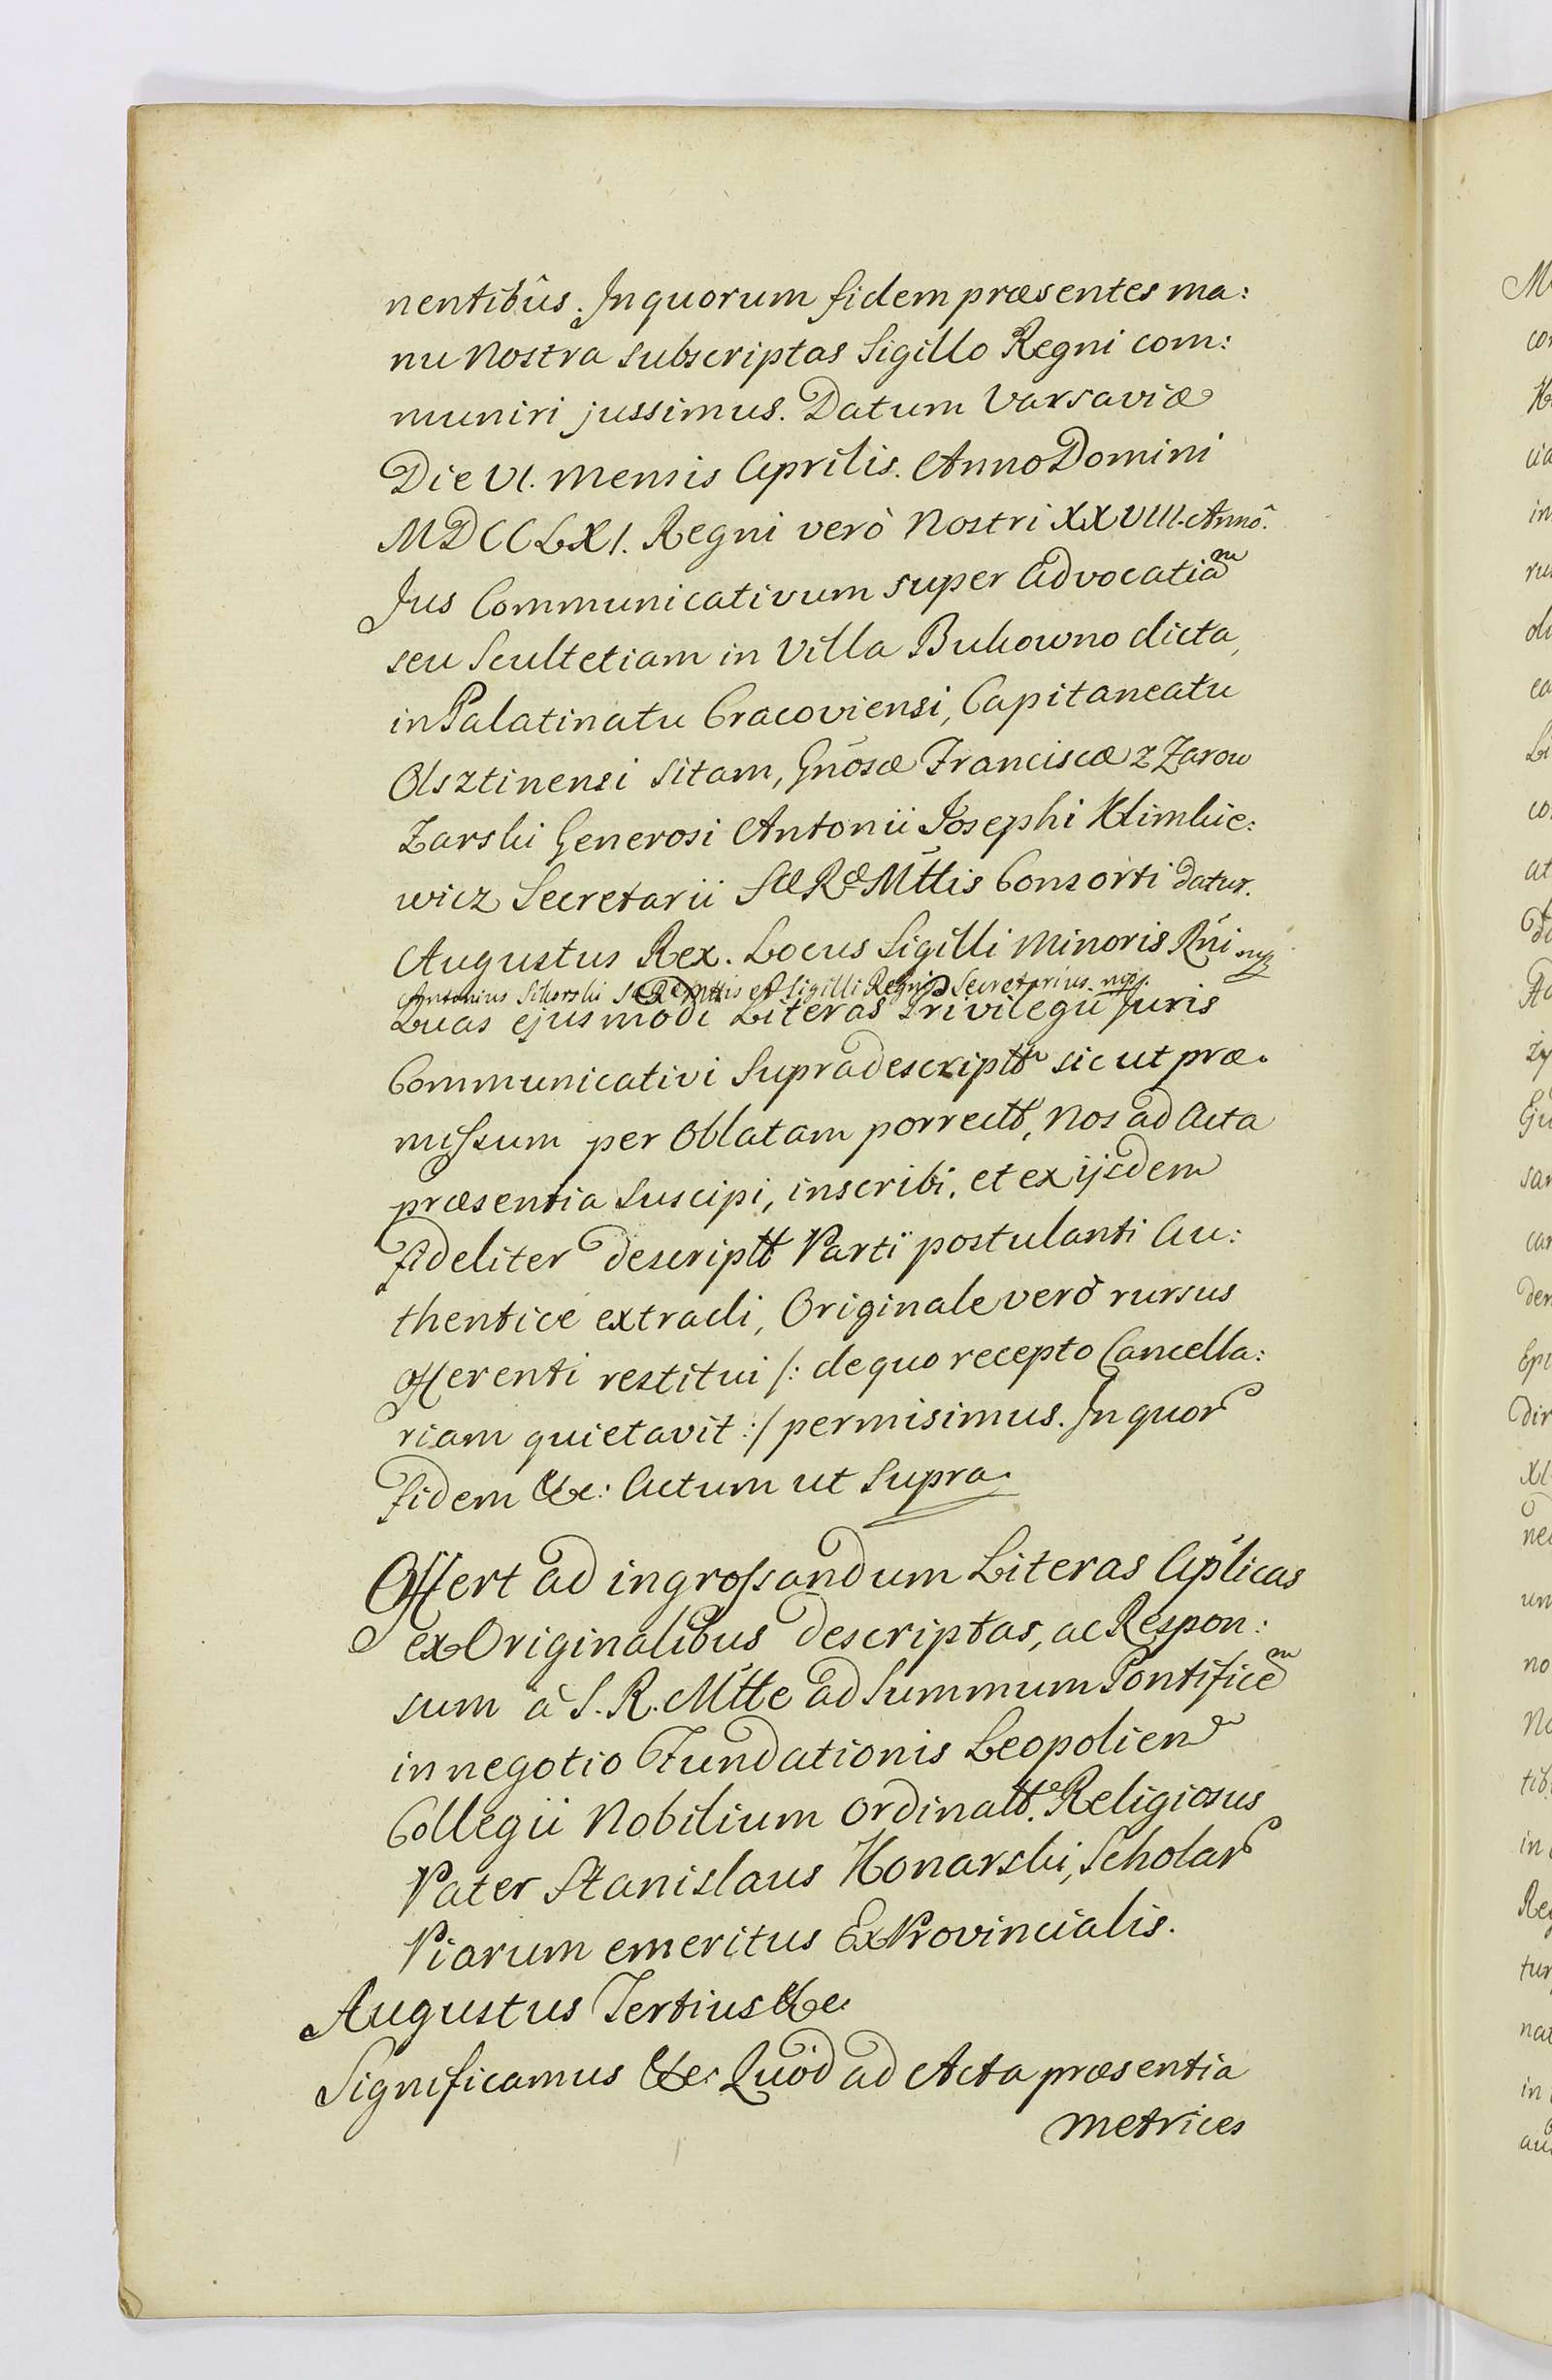 nentibûs. In quorum fidem præsentes ma:
nu Nostra subscriptas Sigillo Regni com:
muniri jussimus. Datum Varsaviæ
Die VI. Mensis Aprilis. Anno Domini
MDCCLXI. Regni verò Nostri XXVIII. Annô.
Jus Communicativum super Advocatiam
seu Scultetiam in Villa Bukowno dicta,
in Palatinatu Cracoviensi, Capitaneatu
Olsztinensi Sitam, Gnosæ Franciscæ z Zarow
Zarski Generosi Antonii Josephi Klimkie:
wicz Secretarii SæRæMttis Consorti datur.
Augustus Rex. Locus Sigilli Minoris Rni
Antonius Sikorski SæRæMttis et Sigilli Regni Secretarius mpp.
Quas ejusmodi Literas Privilegii Juris
Communicativi Supradescriptt sic ut præ:
missum per Oblatam porrectt, Nos ad Acta
præsentia Suscipi, inscribi, et ex ijsdem
fideliter descriptt Parti postulanti Au:
thenticè extradi, Originale verò rursus
Offerenti restitui /: de quo recepto Cancella:
riam quietavit :/ permisimus. In quor
fidem &c: Actum ut Supra.
Offert ad ingrossandum Literas Aplicas
ex Originalibus descriptas, ac Respon:
sum à S. R. Mtte ad Summum Pontificem
in negotio Fundationis Leopolien
Collegii Nobilium Ordinatt. Religiosus
Pater Stanislaus Konarski, Scholar
Piarum emeritus ExProvincialis.
Augustus Tertius &c.
Significamus &c. Quòd ad Acta præsentia
Metrices